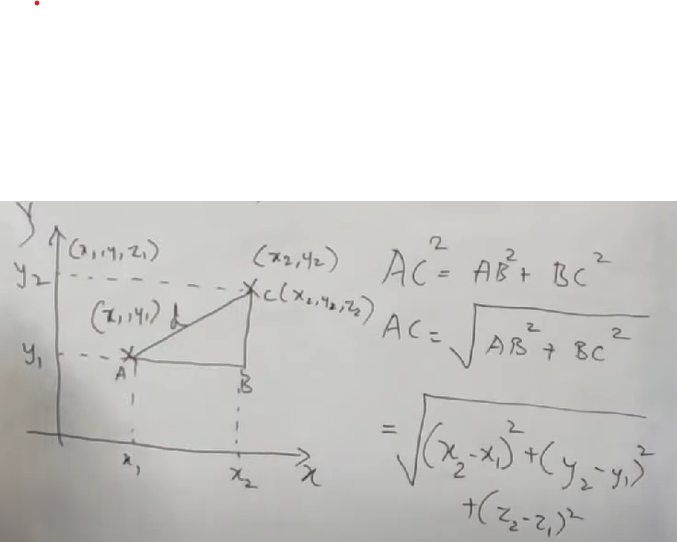 y
(x₁,y₁,z₁)
y₂
(x₂,y₂)
C(x₂,y₂,z₂)
(x₁,y₁) d
y₁
A
B
x₁
x₂
x
AC² = AB² + BC²
AC = √(AB² + BC²)
= √((x₂-x₁)² + (y₂-y₁)²
+(z₂-z₁)²